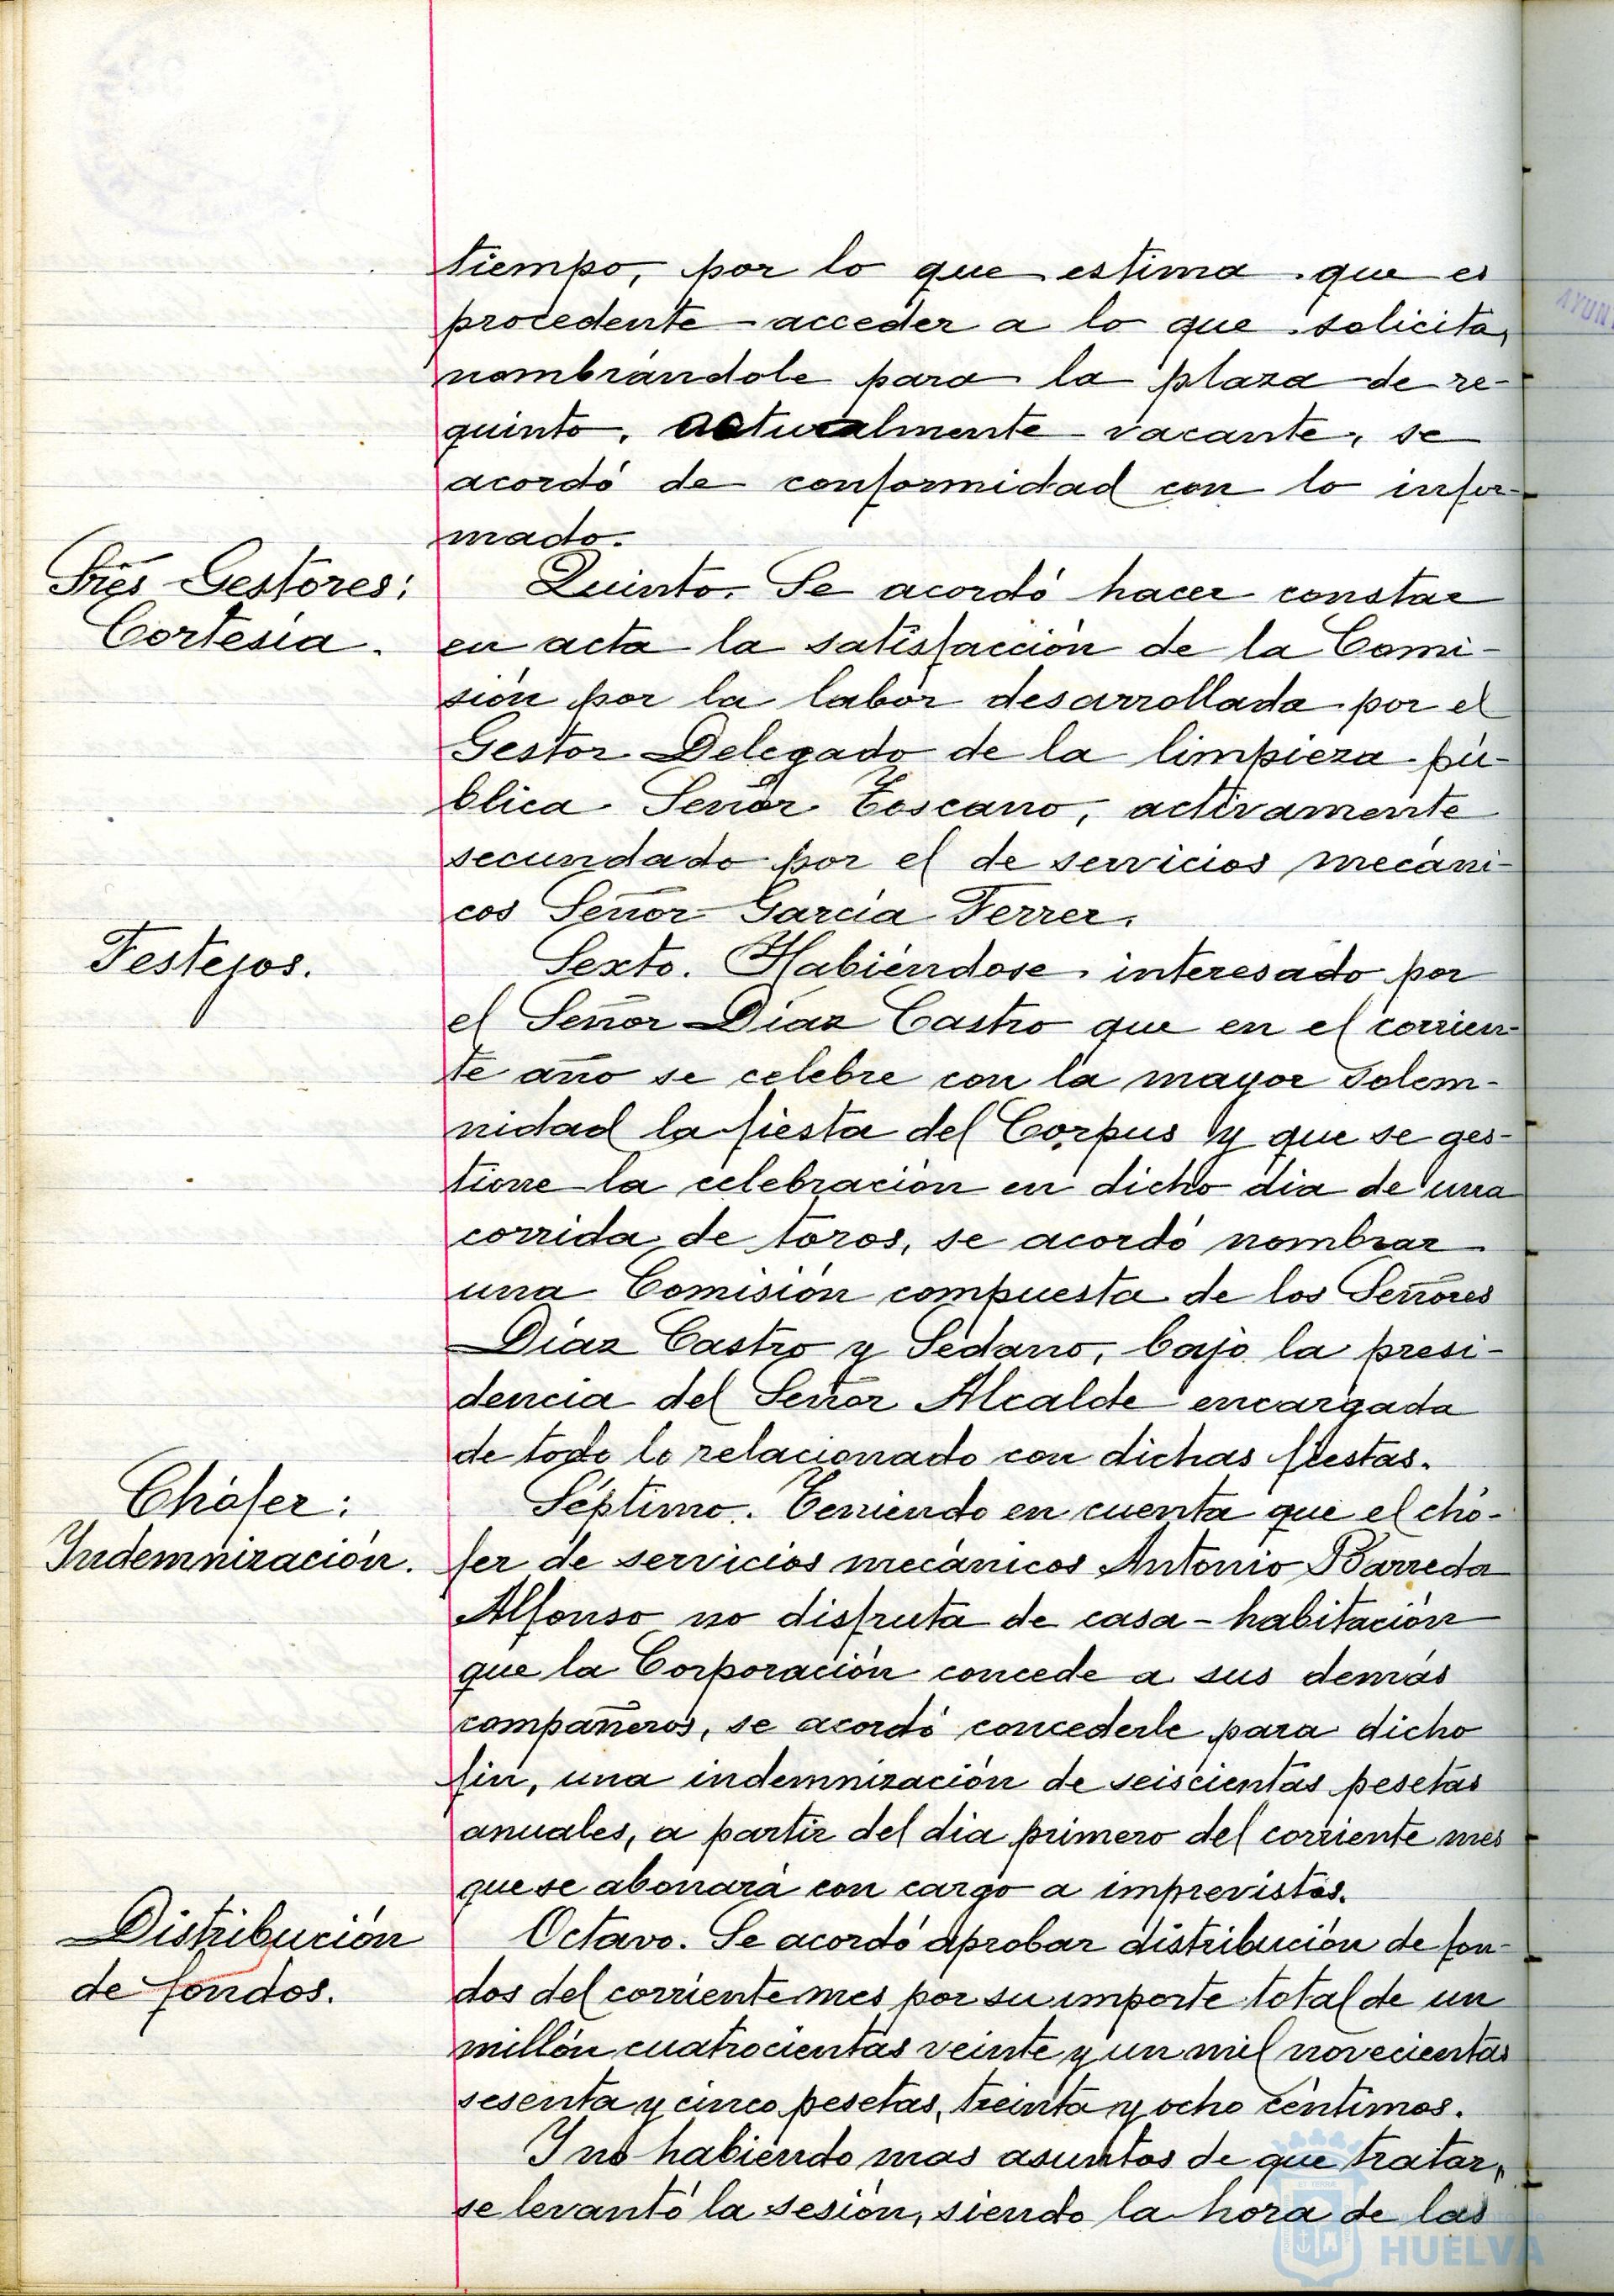 tiempo, por lo que estima que es
procedente acceder a lo que solicita,
nombrándole para la plaza de re-
quinto, actualmente vacante, se
acordó de conformidad con lo infor-
mado.
Sres Gestores:
Cortesía.
Quinto. Se acordó hacer constar
en acta la satisfacción de la Comi-
sión por la labor desarrollada por el
Gestor Delegado de la limpieza pú-
blica Señor Toscano, activamente
secundado por el de servicios mecáni-
cos Señor García Ferrer.
Festejos.
Sexto. Habiéndose interesado por
el Señor Díaz Castro que en el corrien-
te año se celebre con la mayor solem-
nidad la fiesta del Corpus y que se ges-
tione la celebración en dicho dia de una
corrida de toros, se acordó nombrar
una Comisión compuesta de los Señores
Díaz Castro y Sedano, bajo la presi-
dencia del Señor Alcalde encargada
de todo lo relacionado con dichas fiestas.
Chófer:
Indemnización.
Séptimo. Teniendo en cuenta que el chó-
fer de servicios mecánicos Antonio Barreda
Alfonso no disfruta de casa-habitación
que la Corporación concede a sus demás
compañeros, se acordó concederle para dicho
fin, una indemnización de seiscientas pesetas
anuales, a partir del dia primero del corriente mes
que se abonará con cargo a imprevistos.
Distribución
de fondos.
Octavo. Se acordó aprobar distribución de fon-
dos del corriente mes por su importe total de un
millón cuatrocientas veinte y un mil novecientas
sesenta y cinco pesetas, treinta y ocho céntimos.
Y no habiendo mas asuntos de que tratar,
se levantó la sesión, siendo la hora de las
HUELVA